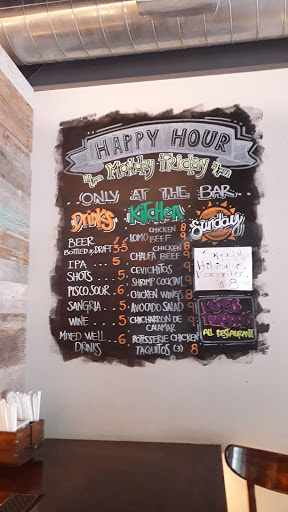 HAPPY HOUR
Monday Friday
ONLY AT THE BAR
DRINKS
BEER
BOTTLED & DRAFT 3.5
IPA . . . . 5
SHOTS . . . 5
PISCO SOUR . 6
SANGRIA . . . 5
WINE . . . 5
MIXED WELL DRINKS . . 6
KITCHEN
LOMO CHICKEN 8
BEEF 9
CHAUFA CHICKEN 8
BEEF 9
CEVICHITOS . . . 9
SHRIMP COCKTAIL 9
CHICKEN WINGS . 8
AVOCADO SALAD . 9
CHICHARRON DE CALAMAR . . 9
ROTISSERIE CHICKEN
TAQUITOS (3) 8
Sunday
Special
Hibiscus
$8
ALL RESTAURANT